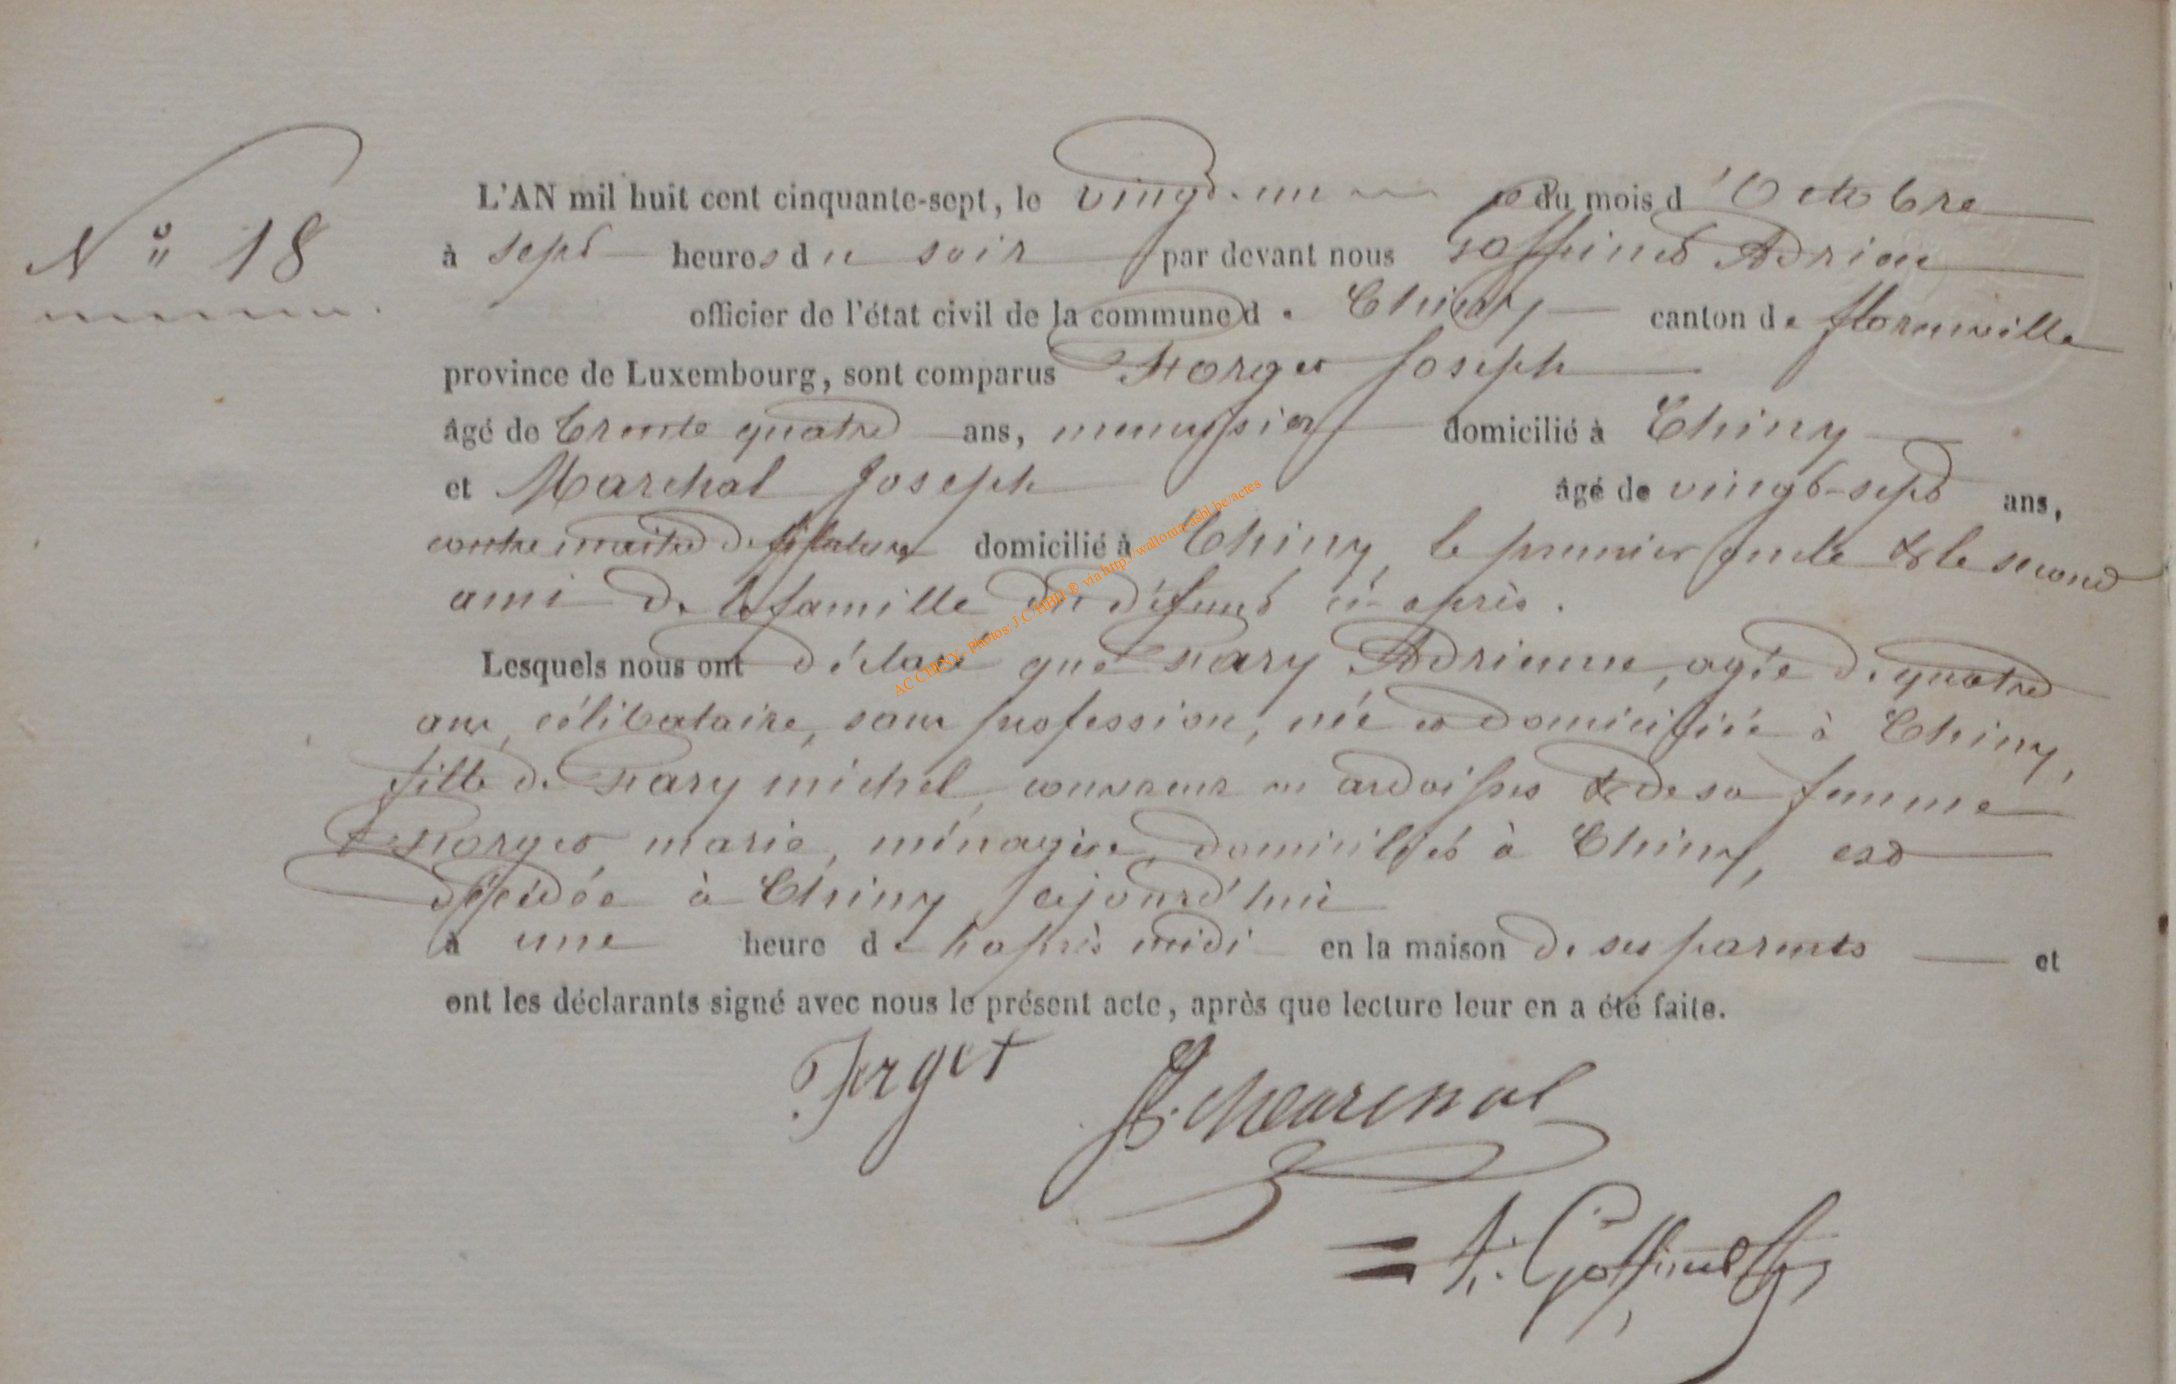 L'AN mil huit cent cinquante-sept, le vingt-un du mois d'Octobre
N° 18
à sept heures du soir par devant nous Goffinet Adrien
officier de l'état civil de la commune de Chiny canton de florenville
province de Luxembourg, sont comparus Forget Joseph
âgé de trente quatre ans, menuisier domicilié à Chiny
et Marchal Joseph âgé de vingt-sept ans,
contremaître de filature domicilié à Chiny, le premier oncle & le second
ami de la famille du défunt ci-après.
Lesquels nous ont déclaré que Fary Adrienne, agée de quatre
ans, célibataire, sans profession, née et domiciliée à Chiny,
fille de Fary michel, couvreur en ardoises & de sa femme
Forget marie, ménagère, domiciliés à Chiny, est
décédée à Chiny, aujourd'hui
à une heure de l'après midi en la maison de ses parents et
ont les déclarants signé avec nous le présent acte, après que lecture leur en a été faite.
Forget
J. Marchal
A. Goffinet
AC CHINY - Photos: J.C. HBH ® via http://wallonia-asbl.be/actes